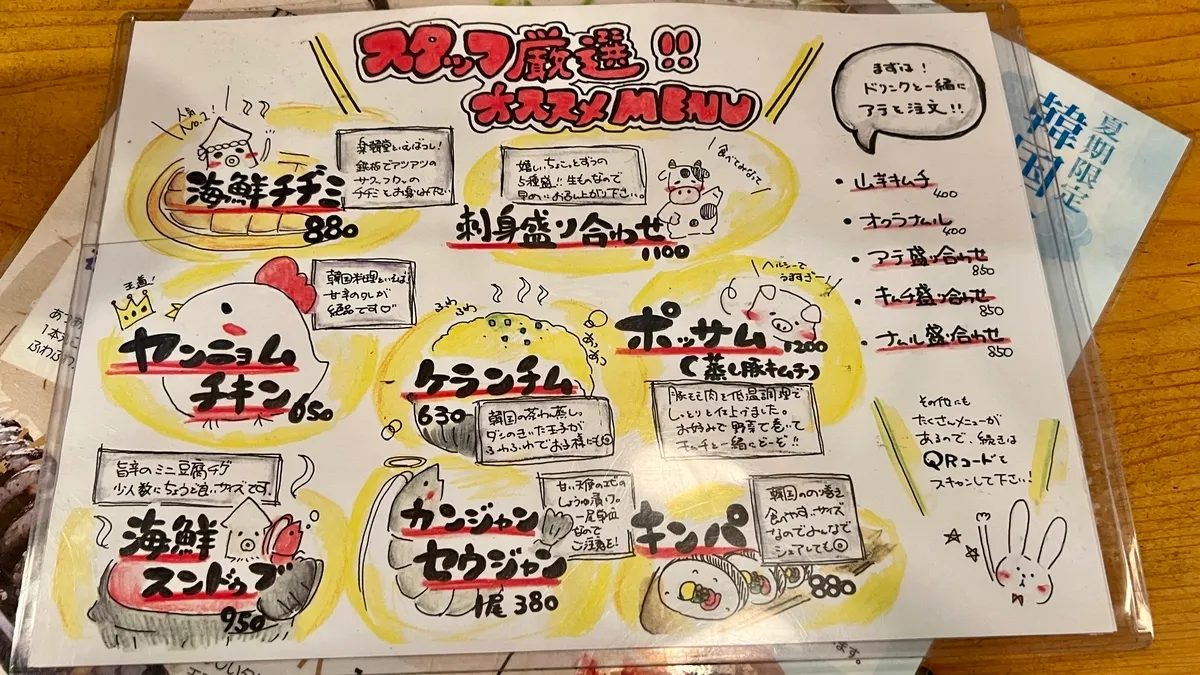 スタッフ厳選!!
オススメMENU
まずは!
ドリンクと一緒に
アテを注文!!
人気
No.1
海鮮チヂミ
880
楽韓堂といえばコレ!
鉄板でアツアツの
サクフワの
チヂミをお召し下さい
嬉しいちょこっとずつの
5種盛!!生ものなので
早めにお召し上がり下さい。
食べてみなって
刺身盛り合わせ
1100
・山芋キムチ
400
・オクラナムル
400
・アテ盛り合わせ
850
・キムチ盛り合わせ
850
・ナムル盛り合わせ
850
王道!
韓国料理といえば!
甘辛のタレが
絶品です♡
ヤンニョム
チキン 650
ふわ
ふわ
ケランチム
630
韓国の茶わん蒸し。
ダシのきいた玉子が
ふわふわでお子様にも◎
ヘルシーで
うますぎー
ポッサム 1200
(蒸し豚キムチ)
豚もも肉を低温調理で
しっとりと仕上げました。
お好みで野菜で巻いて
キムチと一緒にどーぞ!!
旨辛のミニ豆腐チゲ
少人数にちょうど良いサイズです。
海鮮
スンドゥブ
950
甘い天使のエビの
しょうゆ漬け。
一尾単位
なので
ご注意を!
カンジャン
セウジャン
1尾 380
韓国ののり巻き
食べやすいサイズ
なのでみんなで
シェアしても◎
キンパ
880
その他にも
たくさんメニューが
あるので、続きは
QRコードを
スキャンして下さい!
夏期限定
韓国
ます。